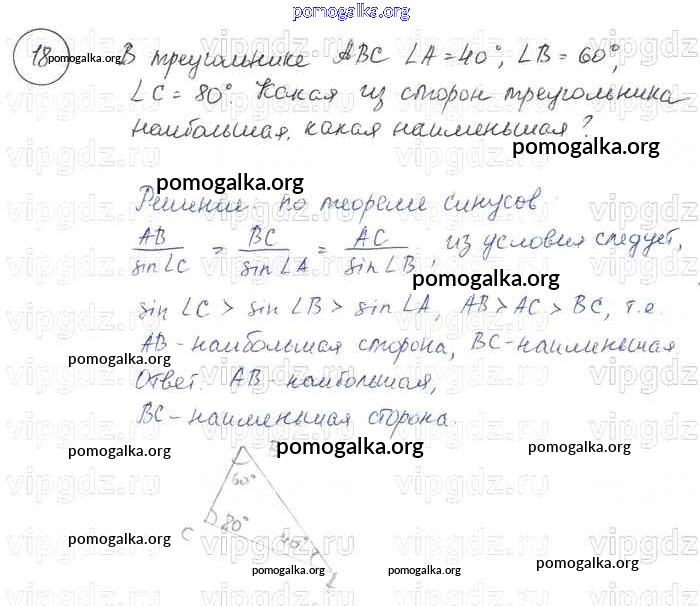 pomogalka.org
18 pomogalka.org В треугольнике ABC ∠A = 40°, ∠B = 60°,
∠C = 80°. Какая из сторон треугольника
наибольшая, какая наименьшая?
pomogalka.org
pomogalka.org
Решение. по теореме синусов
AB/sin∠C = BC/sin∠A = AC/sin∠B, из условия следует,
pomogalka.org
sin ∠C > sin ∠B > sin ∠A, AB > AC > BC, т.е.
AB - наибольшая сторона, BC - наименьшая
pomogalka.org
Ответ. AB - наибольшая,
BC - наименьшая сторона.
pomogalka.org pomogalka.org pomogalka.org
60°
C 80° 40°
pomogalka.org pomogalka.org pomogalka.org
vipgdz.ru